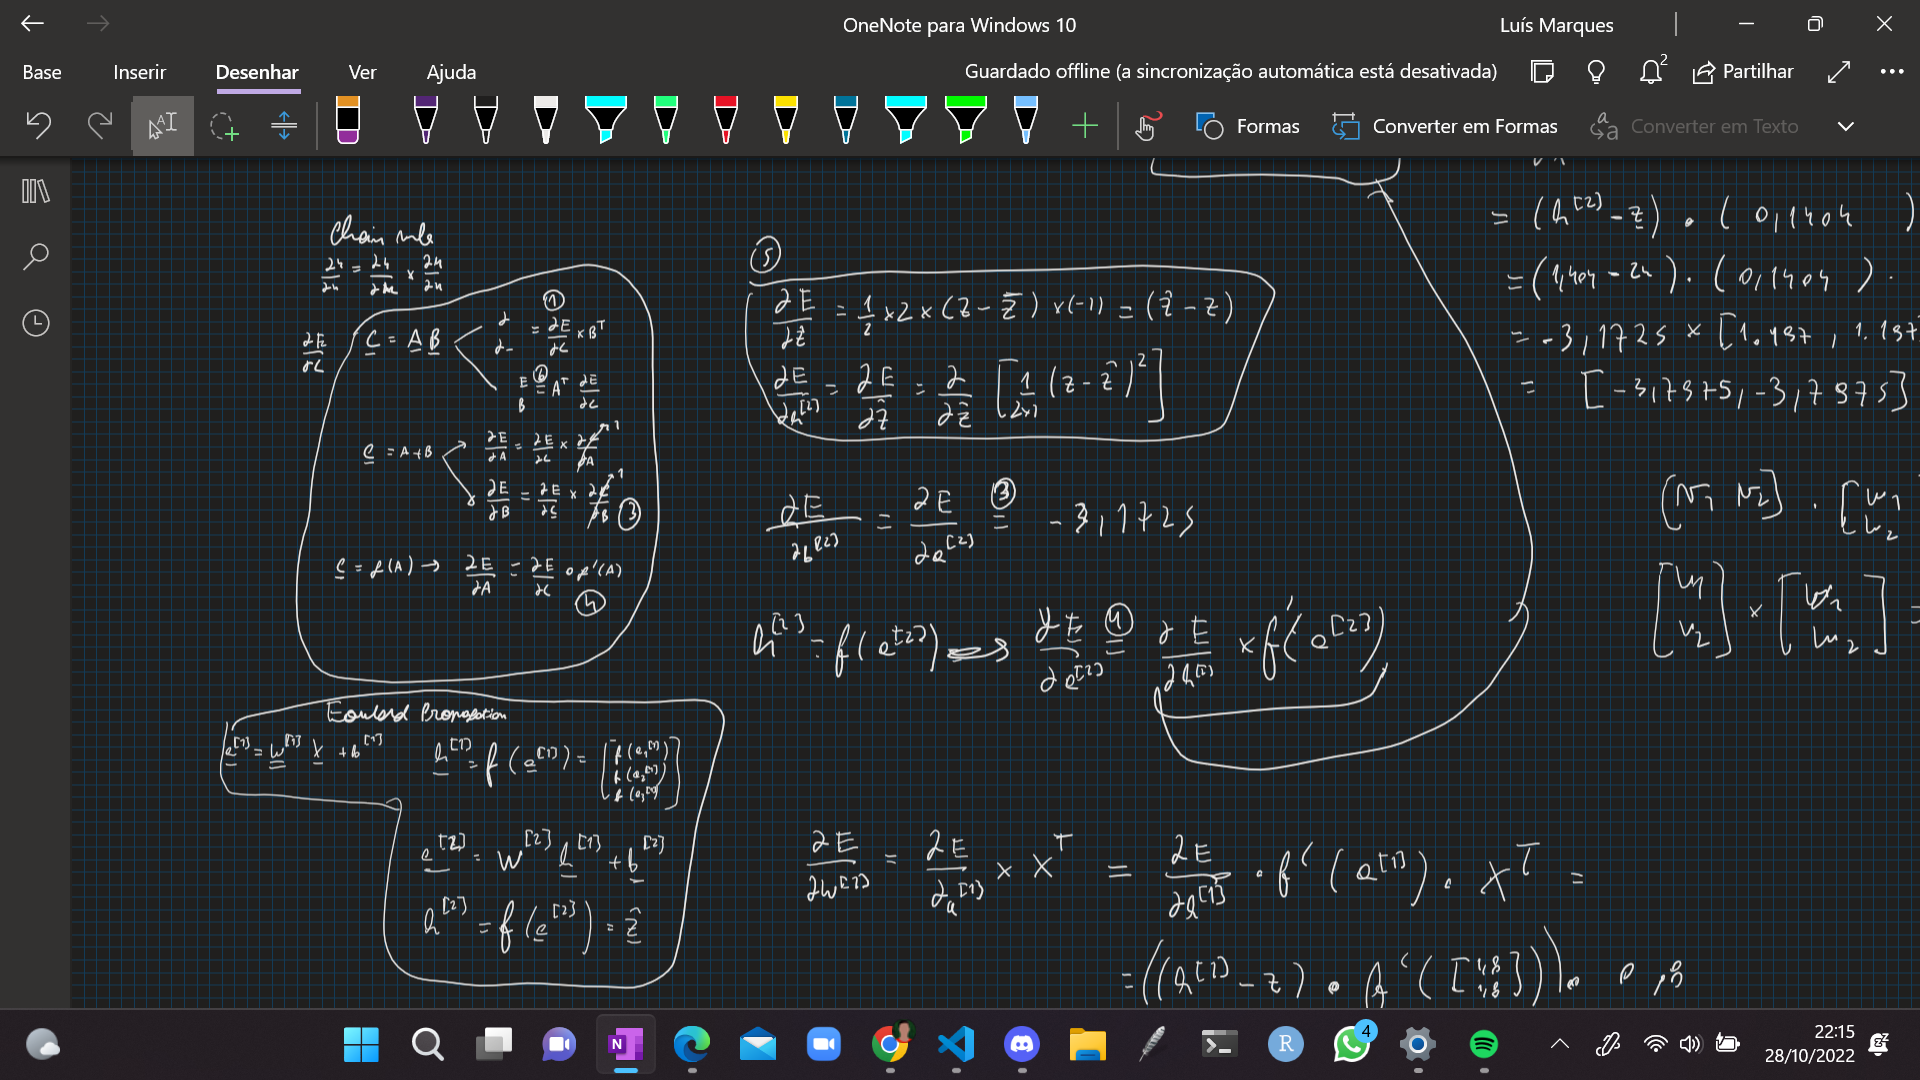 OneNote para Windows 10
Luís Marques
Base Inserir Desenhar Ver Ajuda
Guardado offline (a sincronização automática está desativada)
2
Partilhar
Formas
Converter em Formas
Converter em Texto
Chain rule
∂E/∂C
C = A B
① = ∂E/∂C × Bᵀ
⑥ = Aᵀ ∂E/∂C
C = A + B
∂E/∂A = ∂E/∂C × ∂C/∂A 1
∂E/∂B = ∂E/∂C × ∂C/∂B 1 ③
C = f(A) → ∂E/∂A = ∂E/∂C ∘ f'(A)
④
Forward Propagation
e[1] = W[1] X + b[1]
h[1] = f(e[1]) = [f(e₁[1]) f(e₂[1]) f(e₃[1])]
e[2] = W[2] h[1] + b[2]
h[2] = f(e[2]) = ẑ
⑤
∂E/∂ẑ = 1/2 × 2 × (z - ẑ) × (-1) = (ẑ - z)
∂E/∂h[2] = ∂E/∂ẑ = ∂/∂ẑ [1/2×1 (z - ẑ)²]
∂E/∂b[2] = ∂E/∂e[2] ③ = -3,1725
h[2] = f(e[2]) → ∂E/∂e[2] ④ = ∂E/∂h[2] × f'(e[2])
∂E/∂W[1] = ∂E/∂a[1] × Xᵀ = ∂E/∂h[1] · f'(e[1]) · Xᵀ =
= ((h[1] - z) ∘ f'([1,8 1,8])).
= (h[2] - z) . (0,1404 )
= (1,404 - 24) . (0,1404 ) .
= -3,1725 × [1.197 , 1.197
= [-3,7975, -3,7975]
[v₁ v₂] . [w₁ w₂
[v₁ v₂] × [w₁ w₂] =
4
22:15
28/10/2022